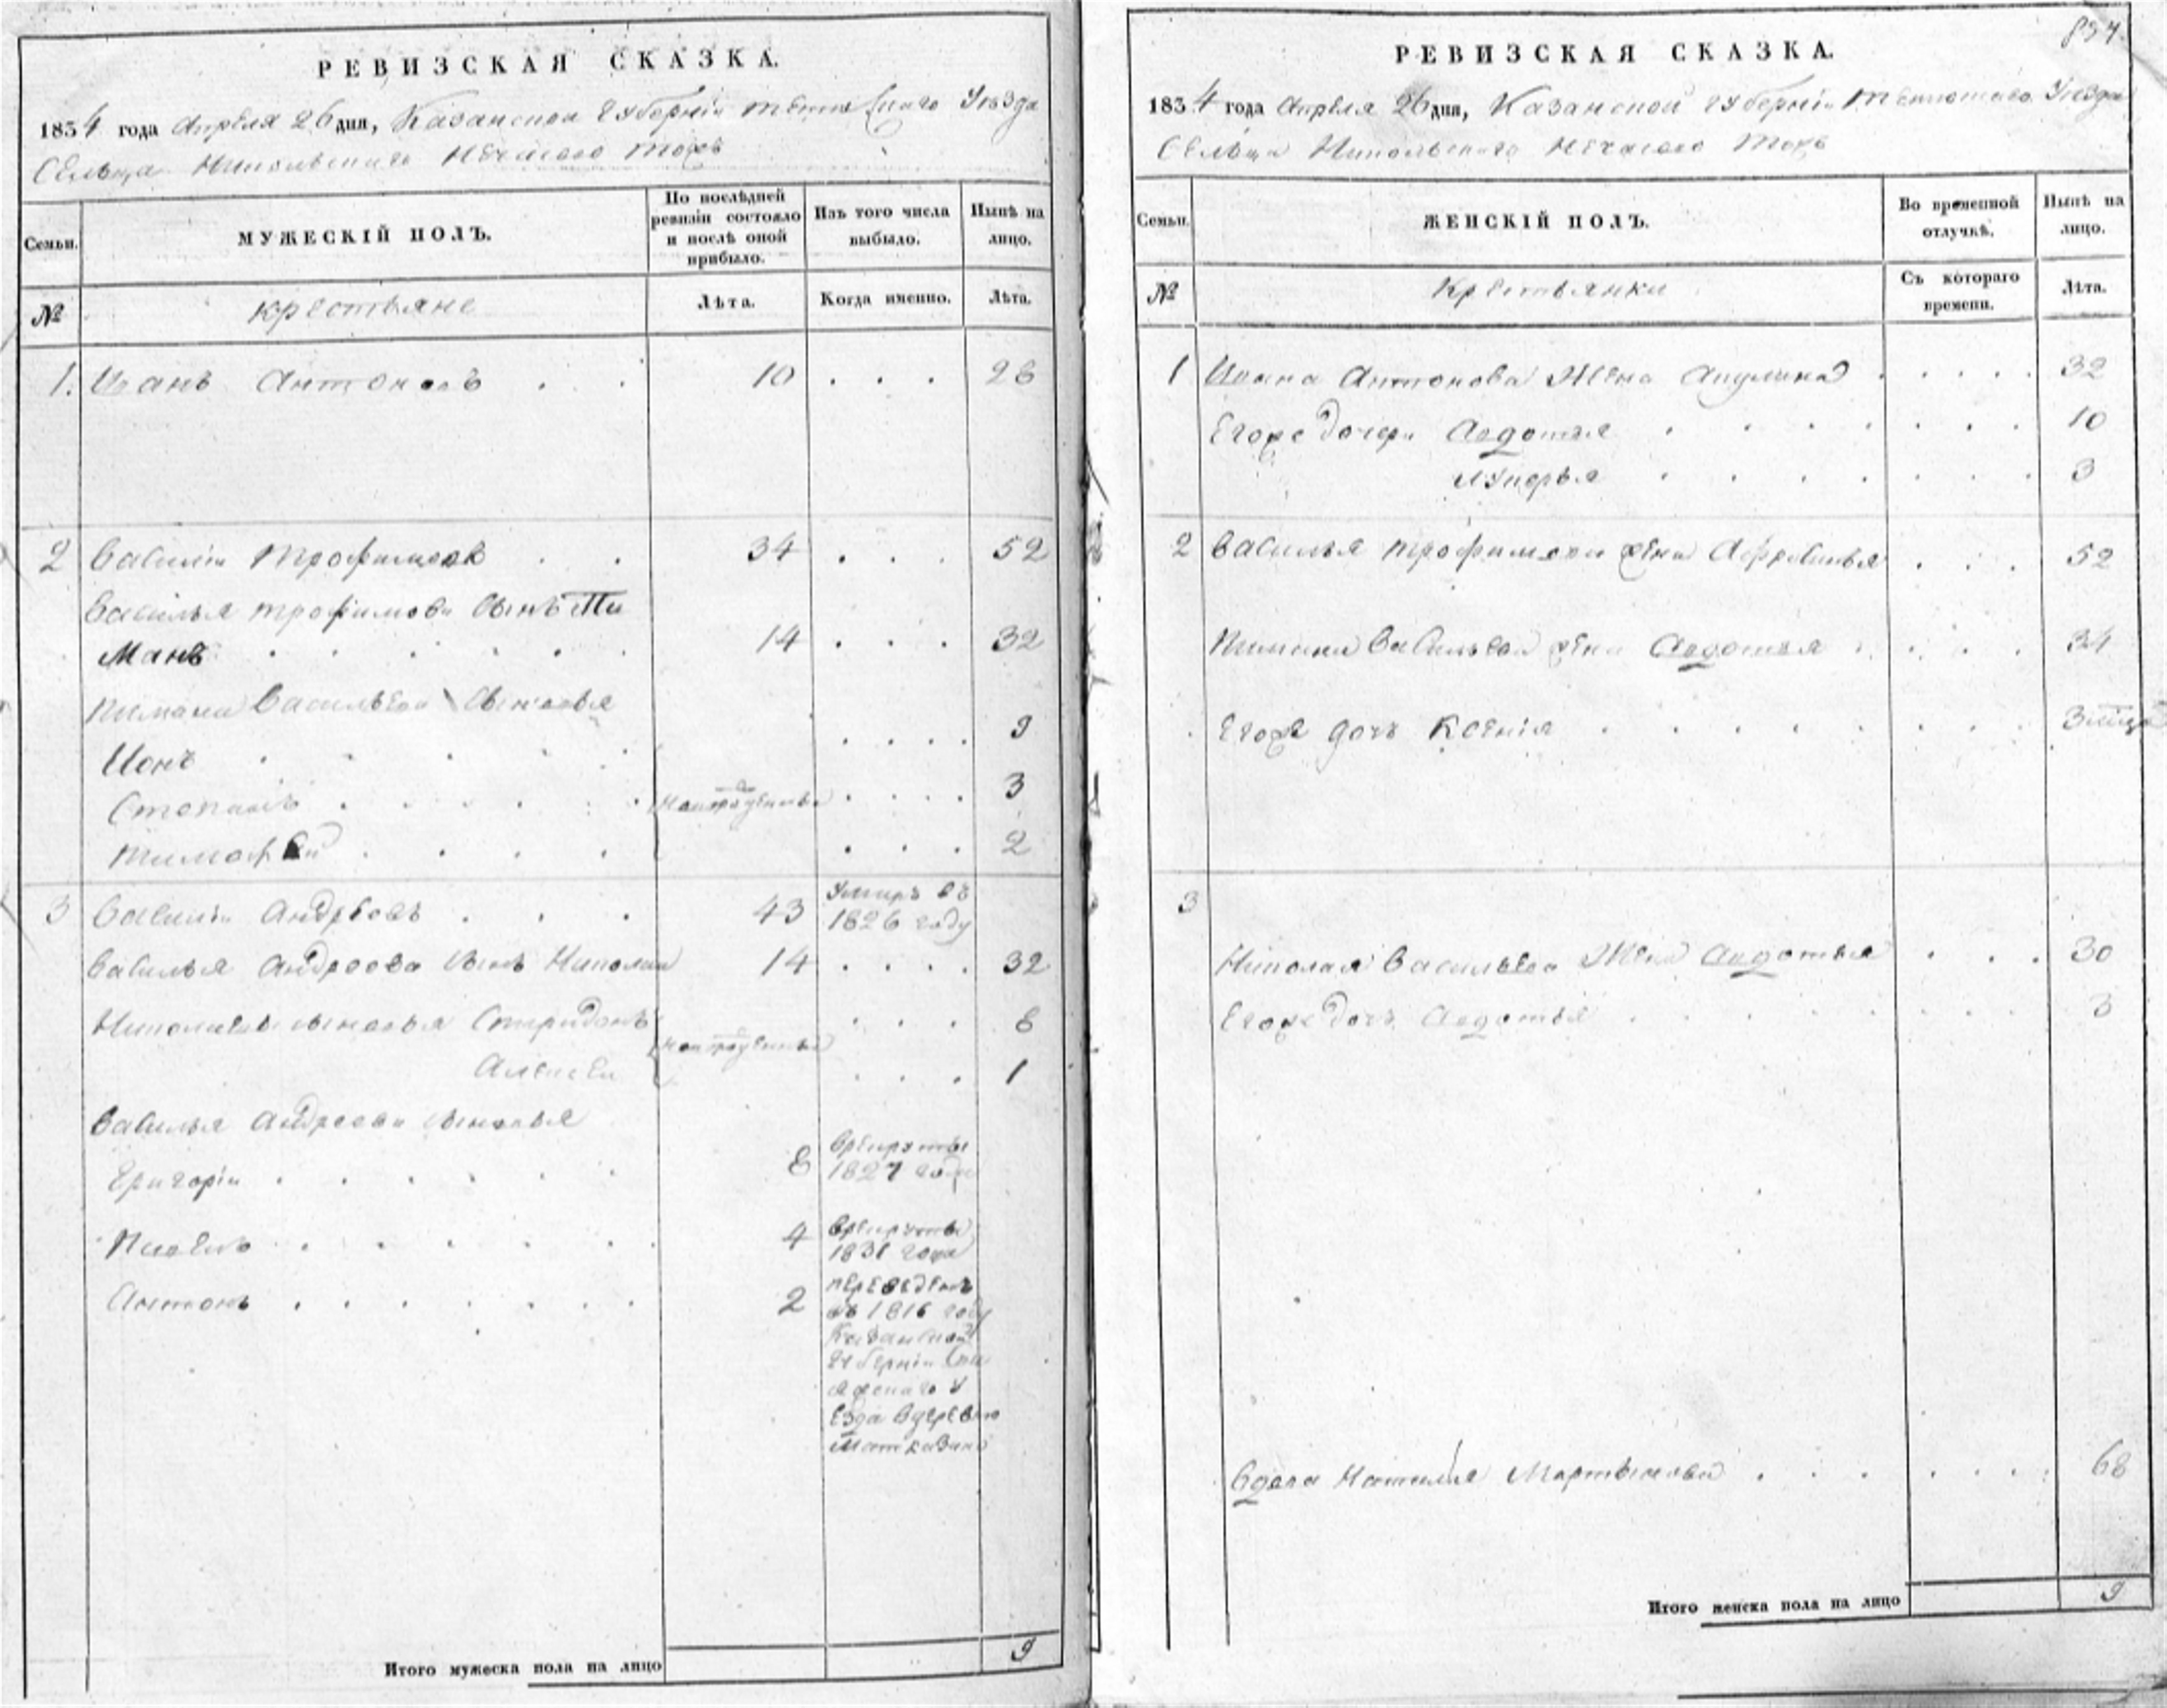 РЕВИЗСКАЯ СКАЗКА.
1834 года Апреля 26 дня, Казанской Губернiи Тетюшскаго Уезда
Сельца Никольскаго Нечасово тожъ
Семьи.
МУЖЕСКІЙ ПОЛЪ.
По послѣдней ревизіи состояло и послѣ оной прибыло.
Изъ того числа выбыло.
Нынѣ на лицо.
№
крестьяне
Лѣта.
Когда именно.
Лѣта.
1. Иванъ Антоновъ . . 10 . . . 28
2 Василiи Трофимовъ . . 34 . . . 52
Василья Трофимова сынъ Пи
Манъ . . . . . . 14 . . . 32
Пимана Васильева сыновья
Ионъ . . . . . . . . . 9
Степанъ . . . . . . новорожденны . . . . 3
Тимофѣй . . . . . . . 2
3 Василiи Андрѣевъ . . . 43 Умиръ въ
1826 году
Василья Андреева сынъ Николаи 14 . . . . 32
Николаевы сыновья Спиридонъ . . . 8
новорожденны
Алексеи . . . 1
Василья Андреева сыновья
Григорiи . . . . . . 8 Врекруты
1827 года
Павелъ . . . . . . 4 Врекруты
1831 года
Антонъ . . . . . . . 2 переведенъ
въ 1816 году
Казанской
Губернiи Спа
скаго У
Езда вдеревню
Матказину
Итого мужеска пола на лицо 9
837
РЕВИЗСКАЯ СКАЗКА.
1834 года Апреля 26 дня, Казанской Губернiи Тетюшскаго Уезда
Сельца Никольскаго Нечасово Тожъ
Семьи.
ЖЕНСКІЙ ПОЛЪ.
Во временной отлучкѣ.
Нынѣ на лицо.
№
Крестьянки
Съ котораго времени.
Лѣта.
1 Ивана Антонова Жена Акулина . . . . . 32
Егоже дочери Авдотья . . . . . . . 10
Лукерья . . . . . . . 3
2 Василья Трофимова жена Афросинья . . . 52
Пимана Васильева жена Авдотья . . . . 34
Егоже дочь Ксенiя . . . . . . . . 3
3
Николая Васильева Жена Авдотья . . . 30
Егоже дочь Авдотья . . . . . . . . 3
Вдова Наталья Мартынова . . . . . . . 68
Итого женска пола на лицо 9